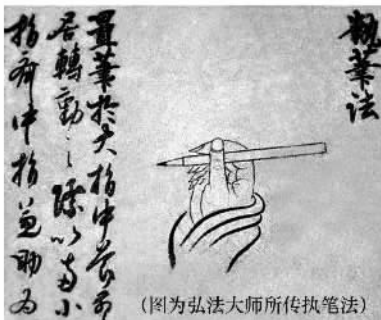 執筆法
置筆於大指中節前
居轉動之際以小
指齊中指兼助為
(图为弘法大师所传执笔法)